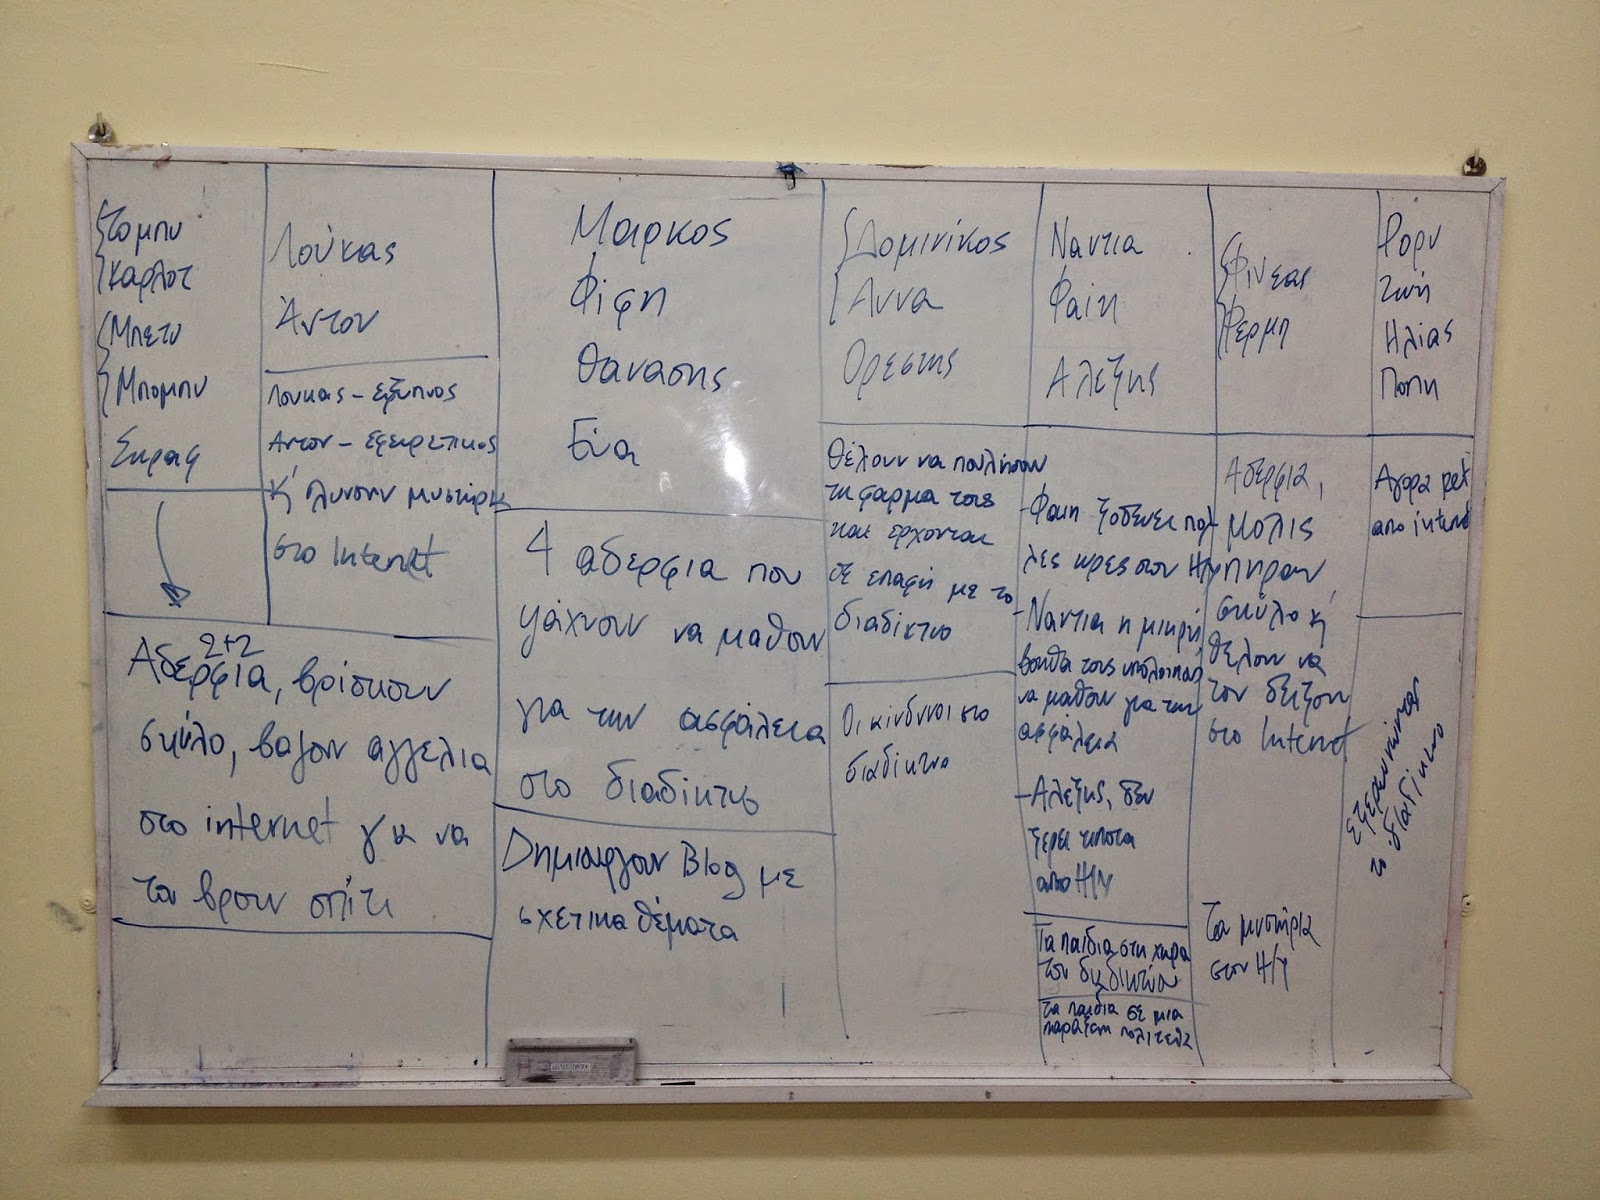 Τομπυ
Καρλοτ
Μπετυ
Μπομπυ
Σκραφ
2+2
Αδερφια, βρίσκουν
σκύλο, βαζουν αγγελια
στο internet για να
το βρουν σπίτι
Λούκας
Άντον
Λουκας - εξυπνος
Αντον - εφευρετικος
κ λυνουν μυστηρια
στο Internet
Μαρκος
Φιφη
Θανασης
Ευα
4 αδερφια που
ψάχνουν να μαθουν
για την ασφάλεια
στο διαδίκτυο
Δημιουργουν Blog με
σχετικα θέματα
Δομινίκος
Αννα
Ορέστης
Θέλουν να πουλήσουν
τη φαρμα τους
και έρχονται
σε επαφή με το
διαδίκτυο
Οι κίνδυνοι στο
διαδίκτυο
Ναντια
Φαιη
Αλεξης
-Φαιη ξοδευει πολ-
λες ωρες στον Η/Υ
-Ναντια η μικρή
βοηθα τους υπολοιπους
να μαθουν για την
ασφάλεια
-Αλεξης, δεν
ξερει τιποτα
απο Η/Υ
Τα παιδια στη χωρα
του διαδικτύου
τα παιδια σε μια
παραξενη πολιτεια
Φινεας
Φερμη
Αδερφια,
μολις
πηραν
σκύλο κ
θελουν να
τον δειξουν
στο Internet
Τα μυστηρια
στον Η/Υ
Ρορυ
Ζωή
Ηλίας
Ποπη
Αγορα pet
απο internet
Εξερευνώντας
το διαδίκτυο